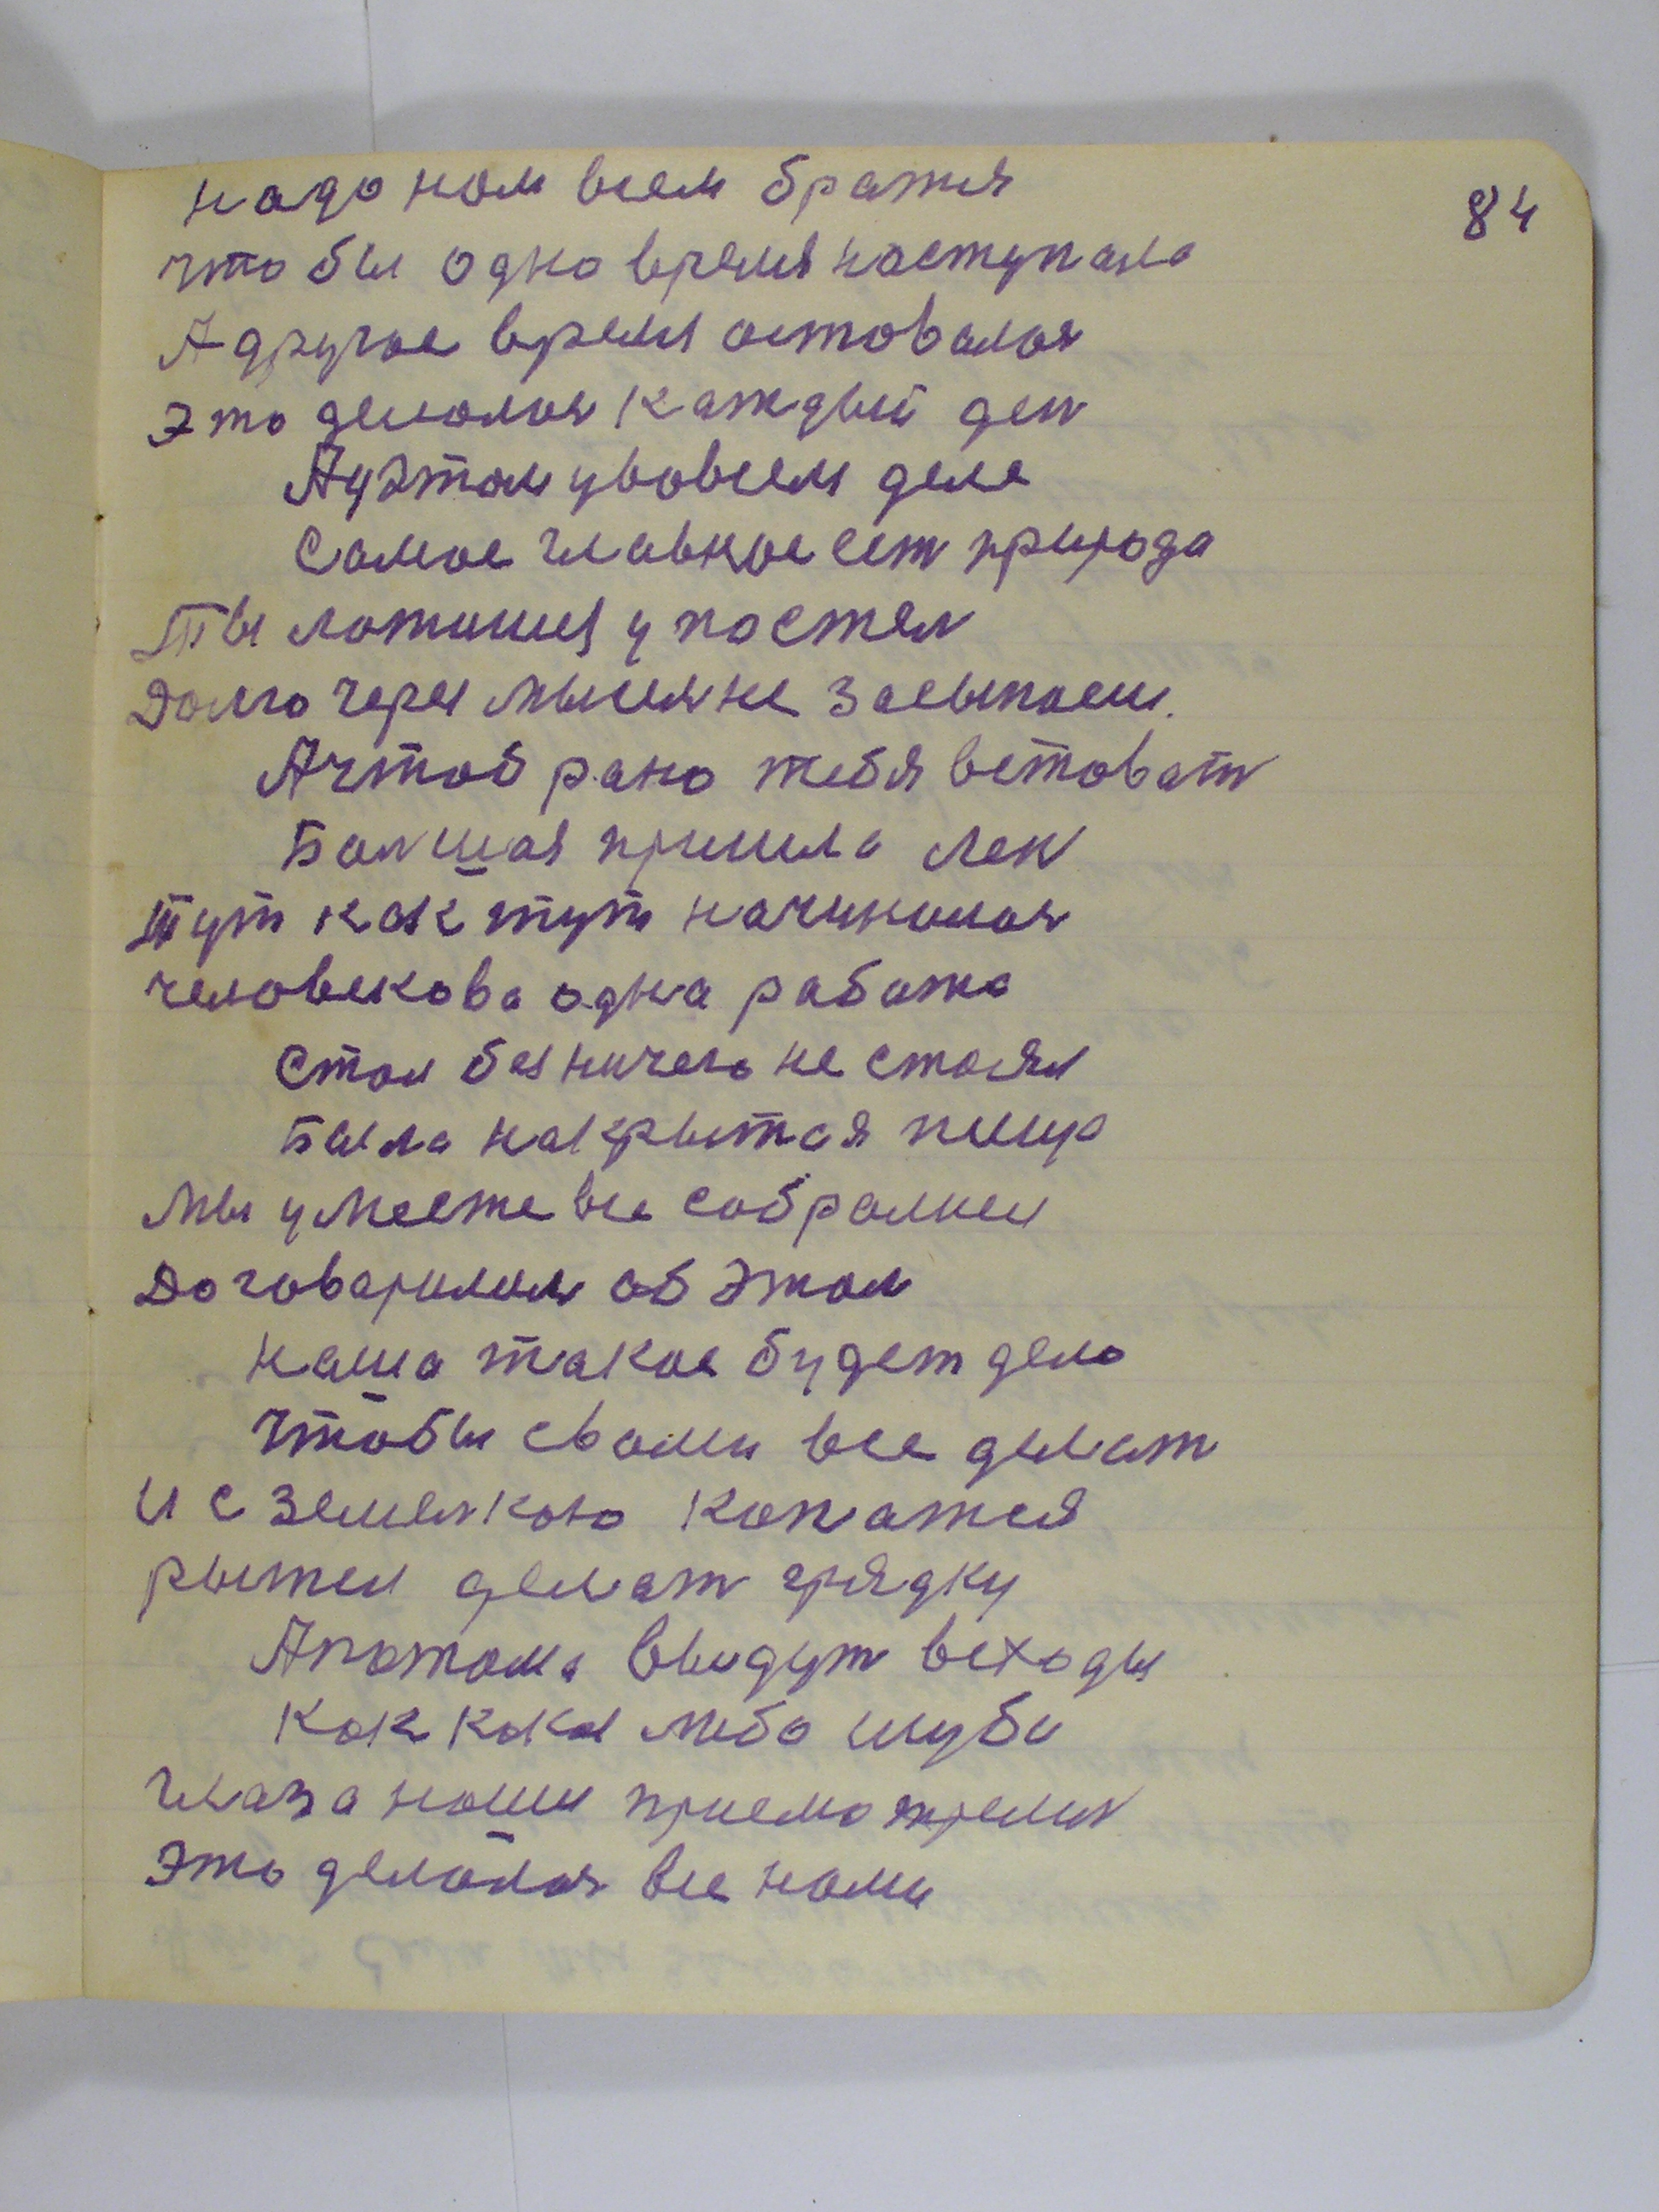 84
надо нам всем братся
что бы одно время наступала
А другое время оставалося
это делалося каждый ден
Ауэтом увовсем деле
Самое главное ест природа
Ты ложишся у постел
Долго через мысля не засыпаеш.
Ачтоб рано тебя встават
Болшая пришла лен
Тут как тут начиналося
человекова одна работа
Стол без ничего не стоял
Была накрытая пища
Мы уместе все собралися
Договарилися об этом
наша такое будет дело
Чтобы с вами все делат
И с земелкою копатся
рытся делат грядку
Апотома выидут всходы
Как кака либо шуба
глаза наши присмотрелис
Это делалося все нами